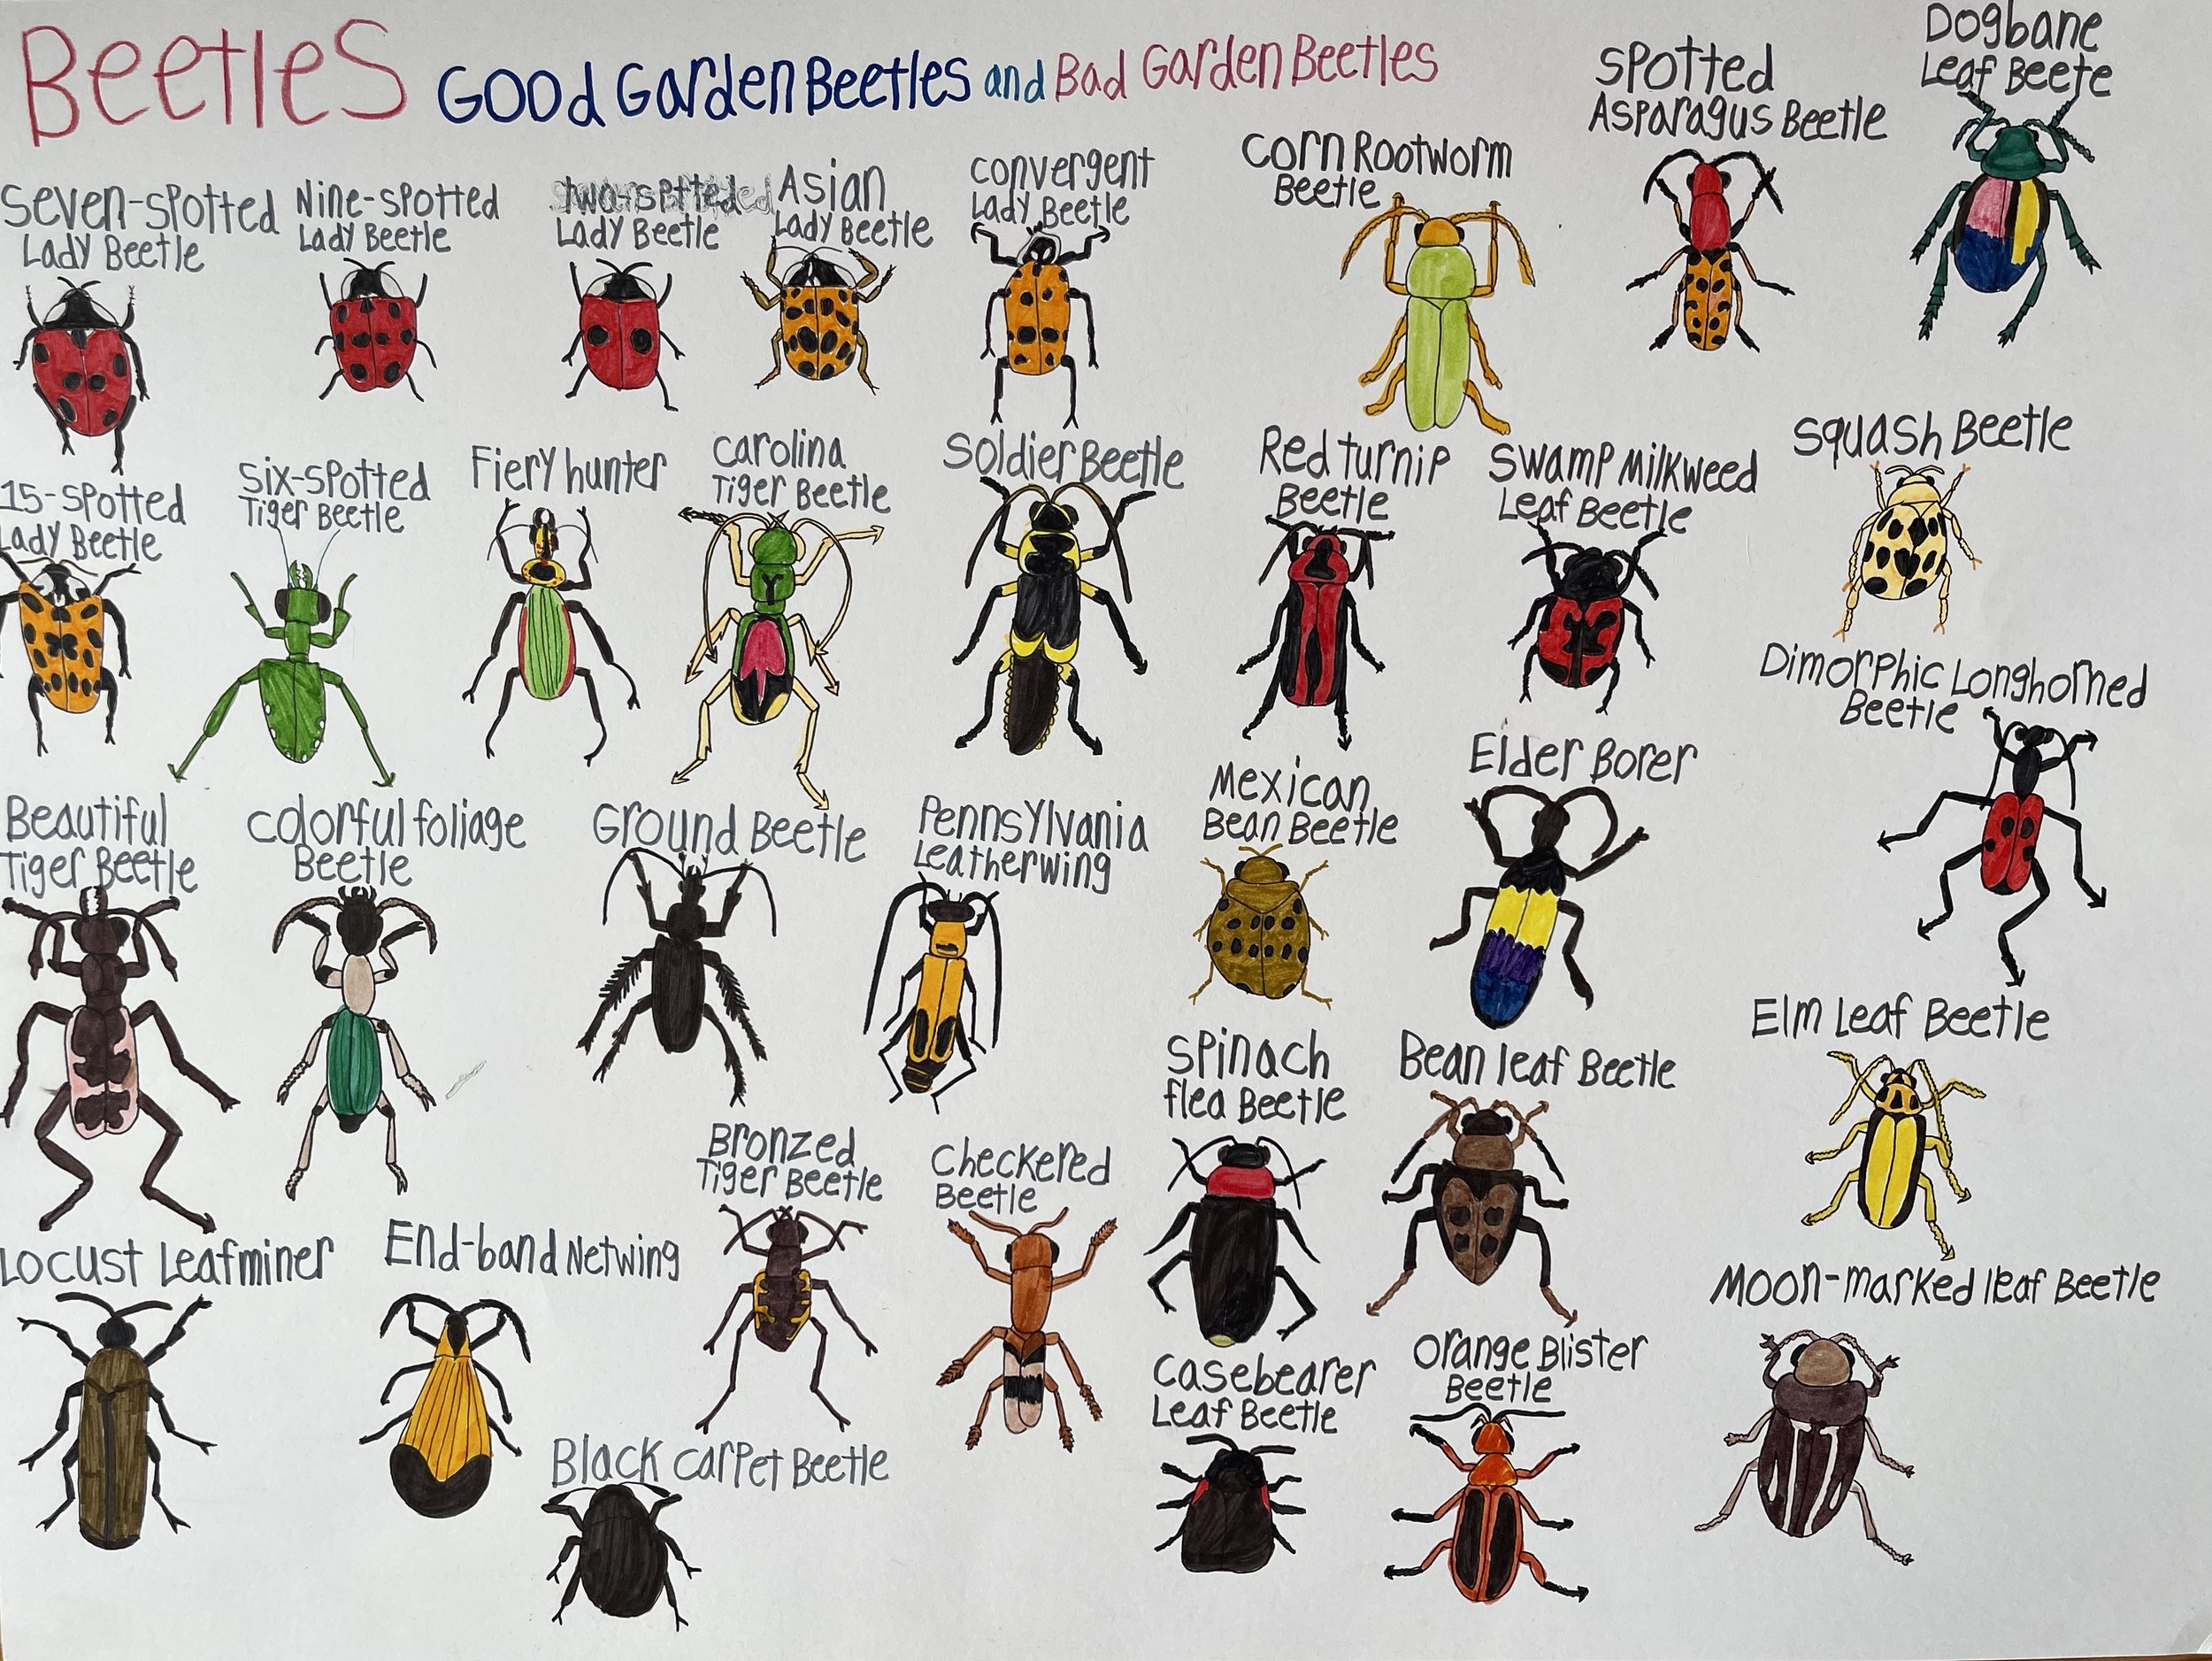 BeetleS
GOOd GardenBeetles and Bad Garden Beetles
Dogbane
Leaf Beete
SPotted
AsParagus Beetle
Corn Rootworm
Beetle
Seven-sPotted
Lady Beetle
Nine-sPotted
Lady Beetle
two-sPtted
Lady Beetle
Asian
Lady Beetle
convergent
Lady Beetle
15-SPotted
Lady Beetle
Six-sPotted
Tiger Beetle
Fiery hunter
Carolina
Tiger Beetle
Soldier Beetle
Red turniP
Beetle
SwamP Milkweed
Leaf Beetle
Squash Beetle
DimorPhic Longhorned
Beetle
Beautiful
Tiger Beetle
Colorful foliage
Beetle
Ground Beetle
Pennsylvania
Leatherwing
Mexican
Bean Beetle
Elder Borer
Elm Leaf Beetle
Bronzed
Tiger Beetle
Checkered
Beetle
SPinach
flea Beetle
Bean leaf Beetle
Locust Leafminer
End-band Netwing
Black carPet Beetle
Casebearer
Leaf Beetle
Orange Blister
Beetle
Moon-marked leaf Beetle